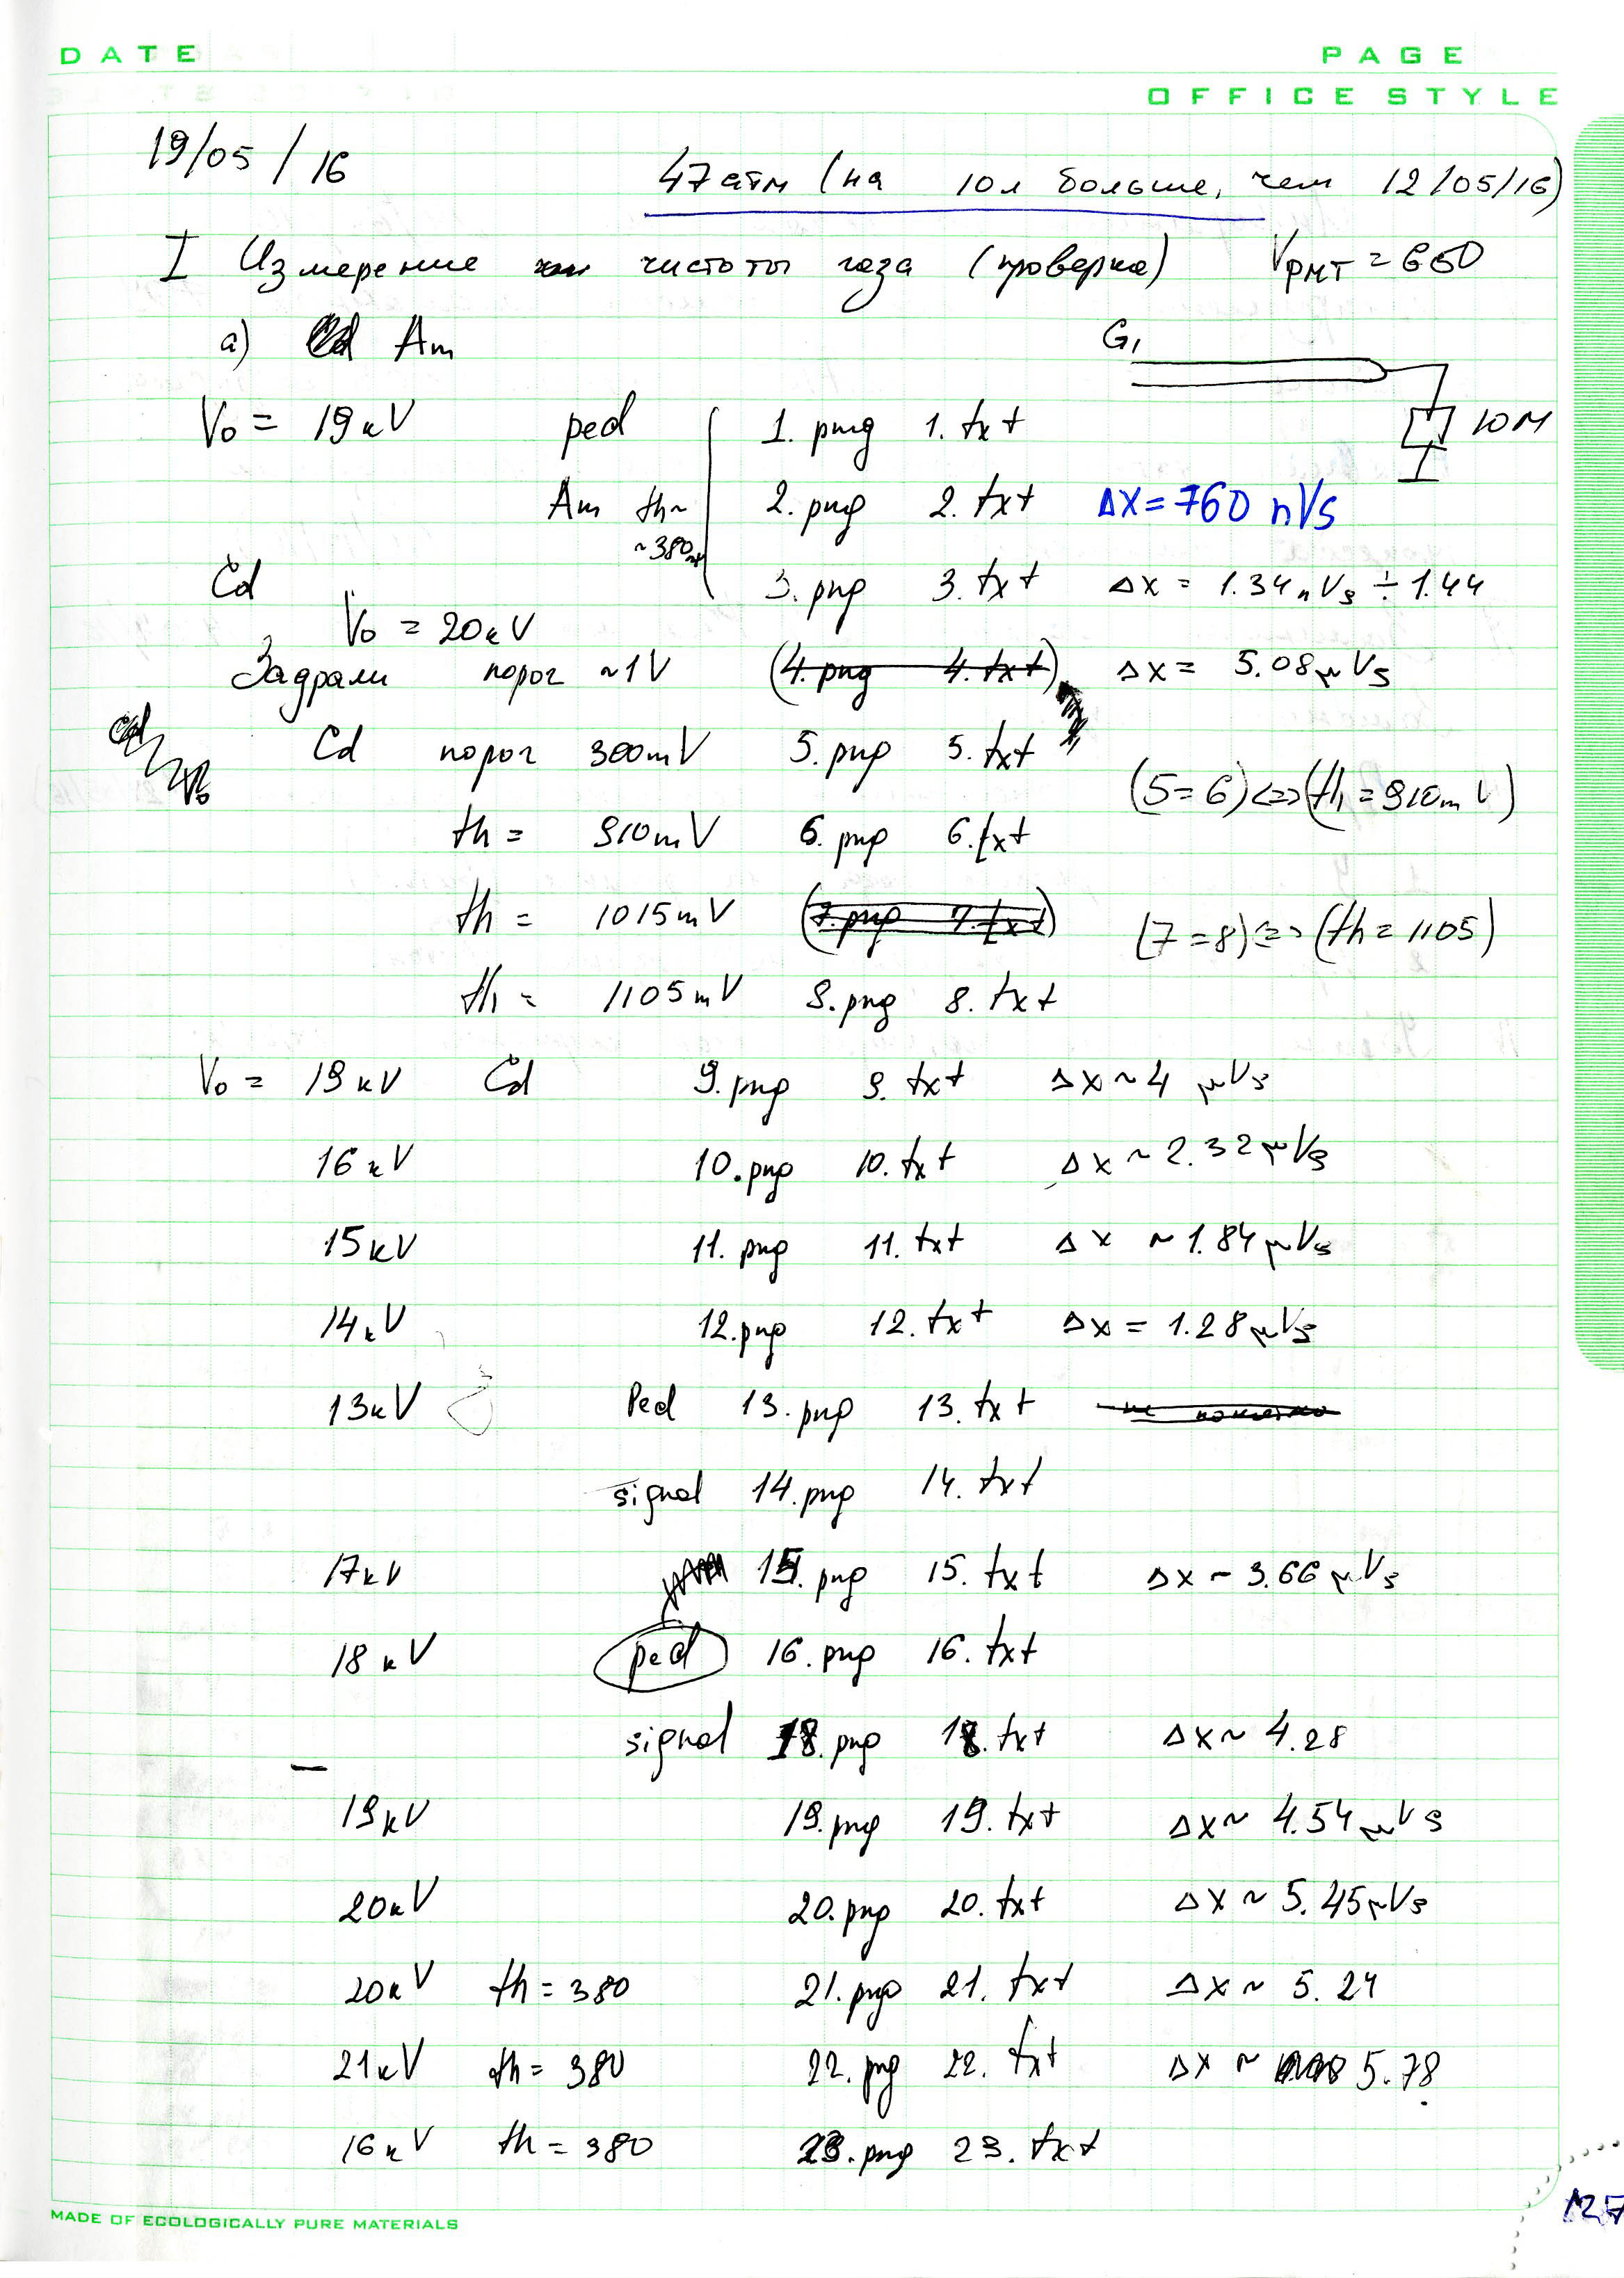 DATE
PAGE
OFFICE STYLE
19/05/16
47 атм (на 10л больше, чем 12/05/16)
I Измерение чистоты газа (проверка) VPMT = 660
a) Am
G1
V0 = 19 кV ped 1. png 1. txt 10M
Am th~ ~380 2. png 2. txt ΔX = 760 nVs
Cd 3. png 3. txt ΔX = 1.34 nVs ÷ 1.44
V0 = 20 кV
Задрали порог ~1V (4. png 4. txt) ΔX = 5.08 μVs
Cd порог 300mV 5. png 5. txt
(5=6) <=> (th = 910mV)
th = 910mV 6. png 6. txt
th = 1015mV (7. png 7. txt)
(7=8) <=> (th = 1105)
th = 1105mV 8. png 8. txt
V0 = 19 кV Cd 9. png 9. txt ΔX ~ 4 μVs
16 кV 10. png 10. txt ΔX ~ 2.32 μVs
15 кV 11. png 11. txt ΔX ~ 1.84 μVs
14 кV 12. png 12. txt ΔX = 1.28 μVs
13 кV Ped 13. png 13. txt
signal 14. png 14. txt
17 кV 15. png 15. txt ΔX ~ 3.66 μVs
18 кV ped 16. png 16. txt
signal 18. png 18. txt ΔX ~ 4.28
19 кV 19. png 19. txt ΔX ~ 4.54 μVs
20 кV 20. png 20. txt ΔX ~ 5.45 μVs
20 кV th = 380 21. png 21. txt ΔX ~ 5.24
21 кV th = 380 22. png 22. txt ΔX ~ 5.78
16 кV th = 380 23. png 23. txt
MADE OF ECOLOGICALLY PURE MATERIALS
127